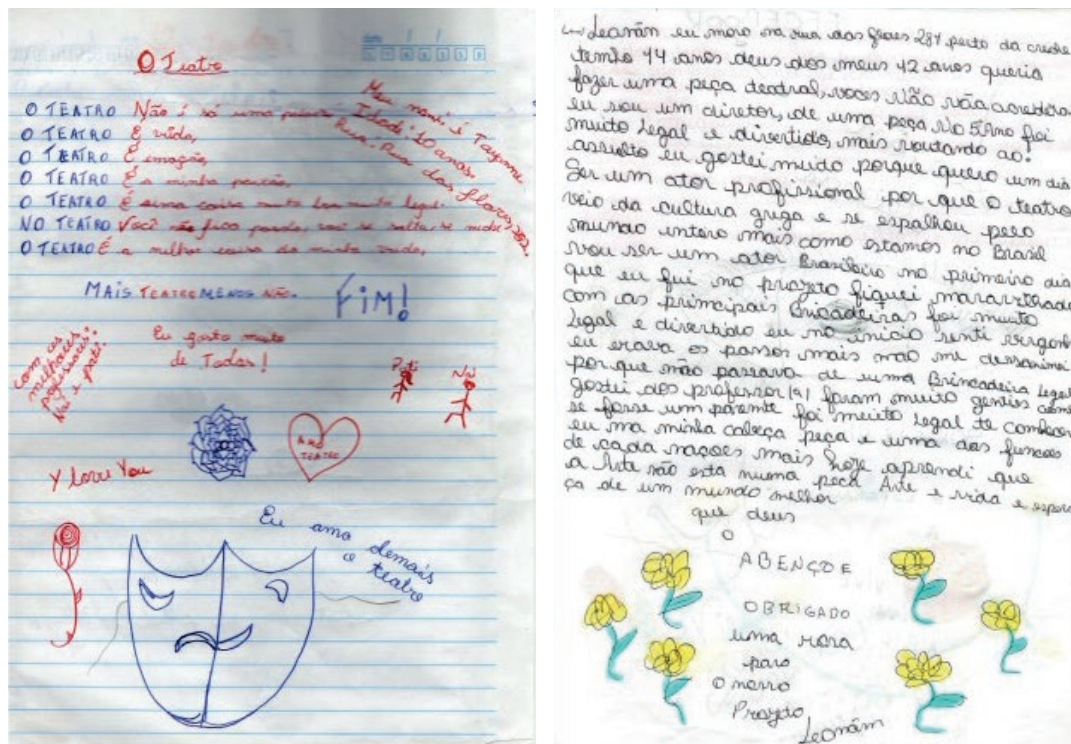 O Teatro
O TEATRO Não é só uma palavra
O TEATRO É vida,
O TEATRO É emoção,
O TEATRO É a minha paixão,
O TEATRO É uma coisa muito boa muito legal.
NO TEATRO Você não fica parado, você se solta, se mexe,
O TEATRO É a melhor coisa da minha vida,
Meu nome é Tayane
Idade: 10 anos,
Rua: Rua das flores,
MAIS TEATRO MENOS NÃO.
FIM!
com os
milhores
professores:
Nai e pati.
Eu gosto muito
de Todas!
Pati
Na
AMO
TEATRO
Y love You
Eu amo demais
o teatro
Leonân eu moro na rua das flores 287 perto da creche
tenho 14 anos deus dos meus 12 anos queria
fazer uma peça teatral, voces Não vão acredita
eu sou um diretor, de uma peça No 5ºAno foi
muito legal e divertido, mais voutando ao:
assulto eu gostei muito porque quero um dia
Ser um ator profissional por que o teatro
veio da cultura grega e se espalhou pelo
mundo intero mais como estamos no Brasil
vou ser um ator Brasileiro no primeiro dia
que eu fui no projeto fiquei maravilhado
com as principais Bricadeiras foi muito
legal e divertido eu no início senti
eu erava os passos mais não me
por que não passava de uma Brincadeira legal
gostei dos professor(a) foram muito gentis como
se fosse um parente foi muito legal te conhecer
eu na minha cabeça peça e uma das
de cada mais hoje aprendi que
a Arte não esta numa peça Arte e vida e espera
ça de um mundo melhor
que deus
O
ABENÇOE
OBRIGADO
uma
para
O nosso
Projeto
Leonâm